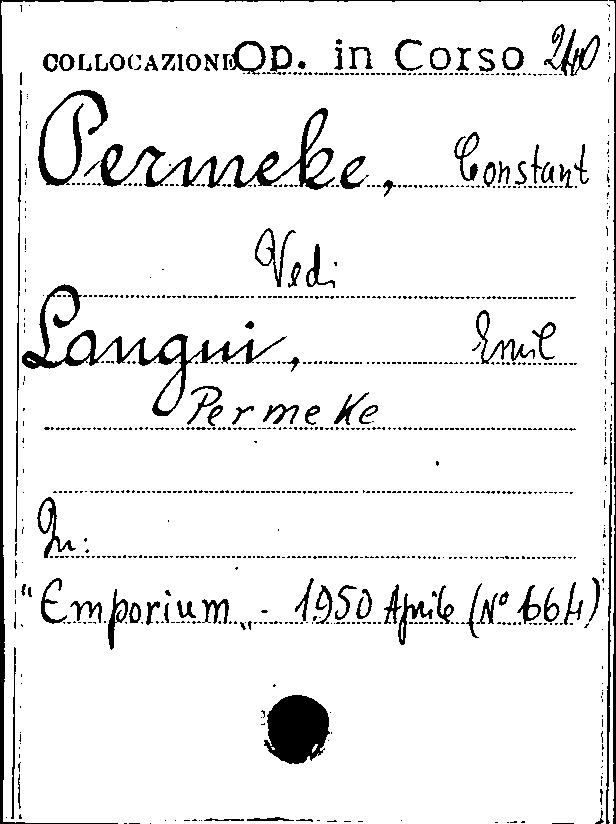 COLLOCAZIONE Op. in Corso 240
Permeke, Constant
Vedi
Langui, Emil
Permeke
In:
"Emporium" - 1950 Aprile (N° 664)